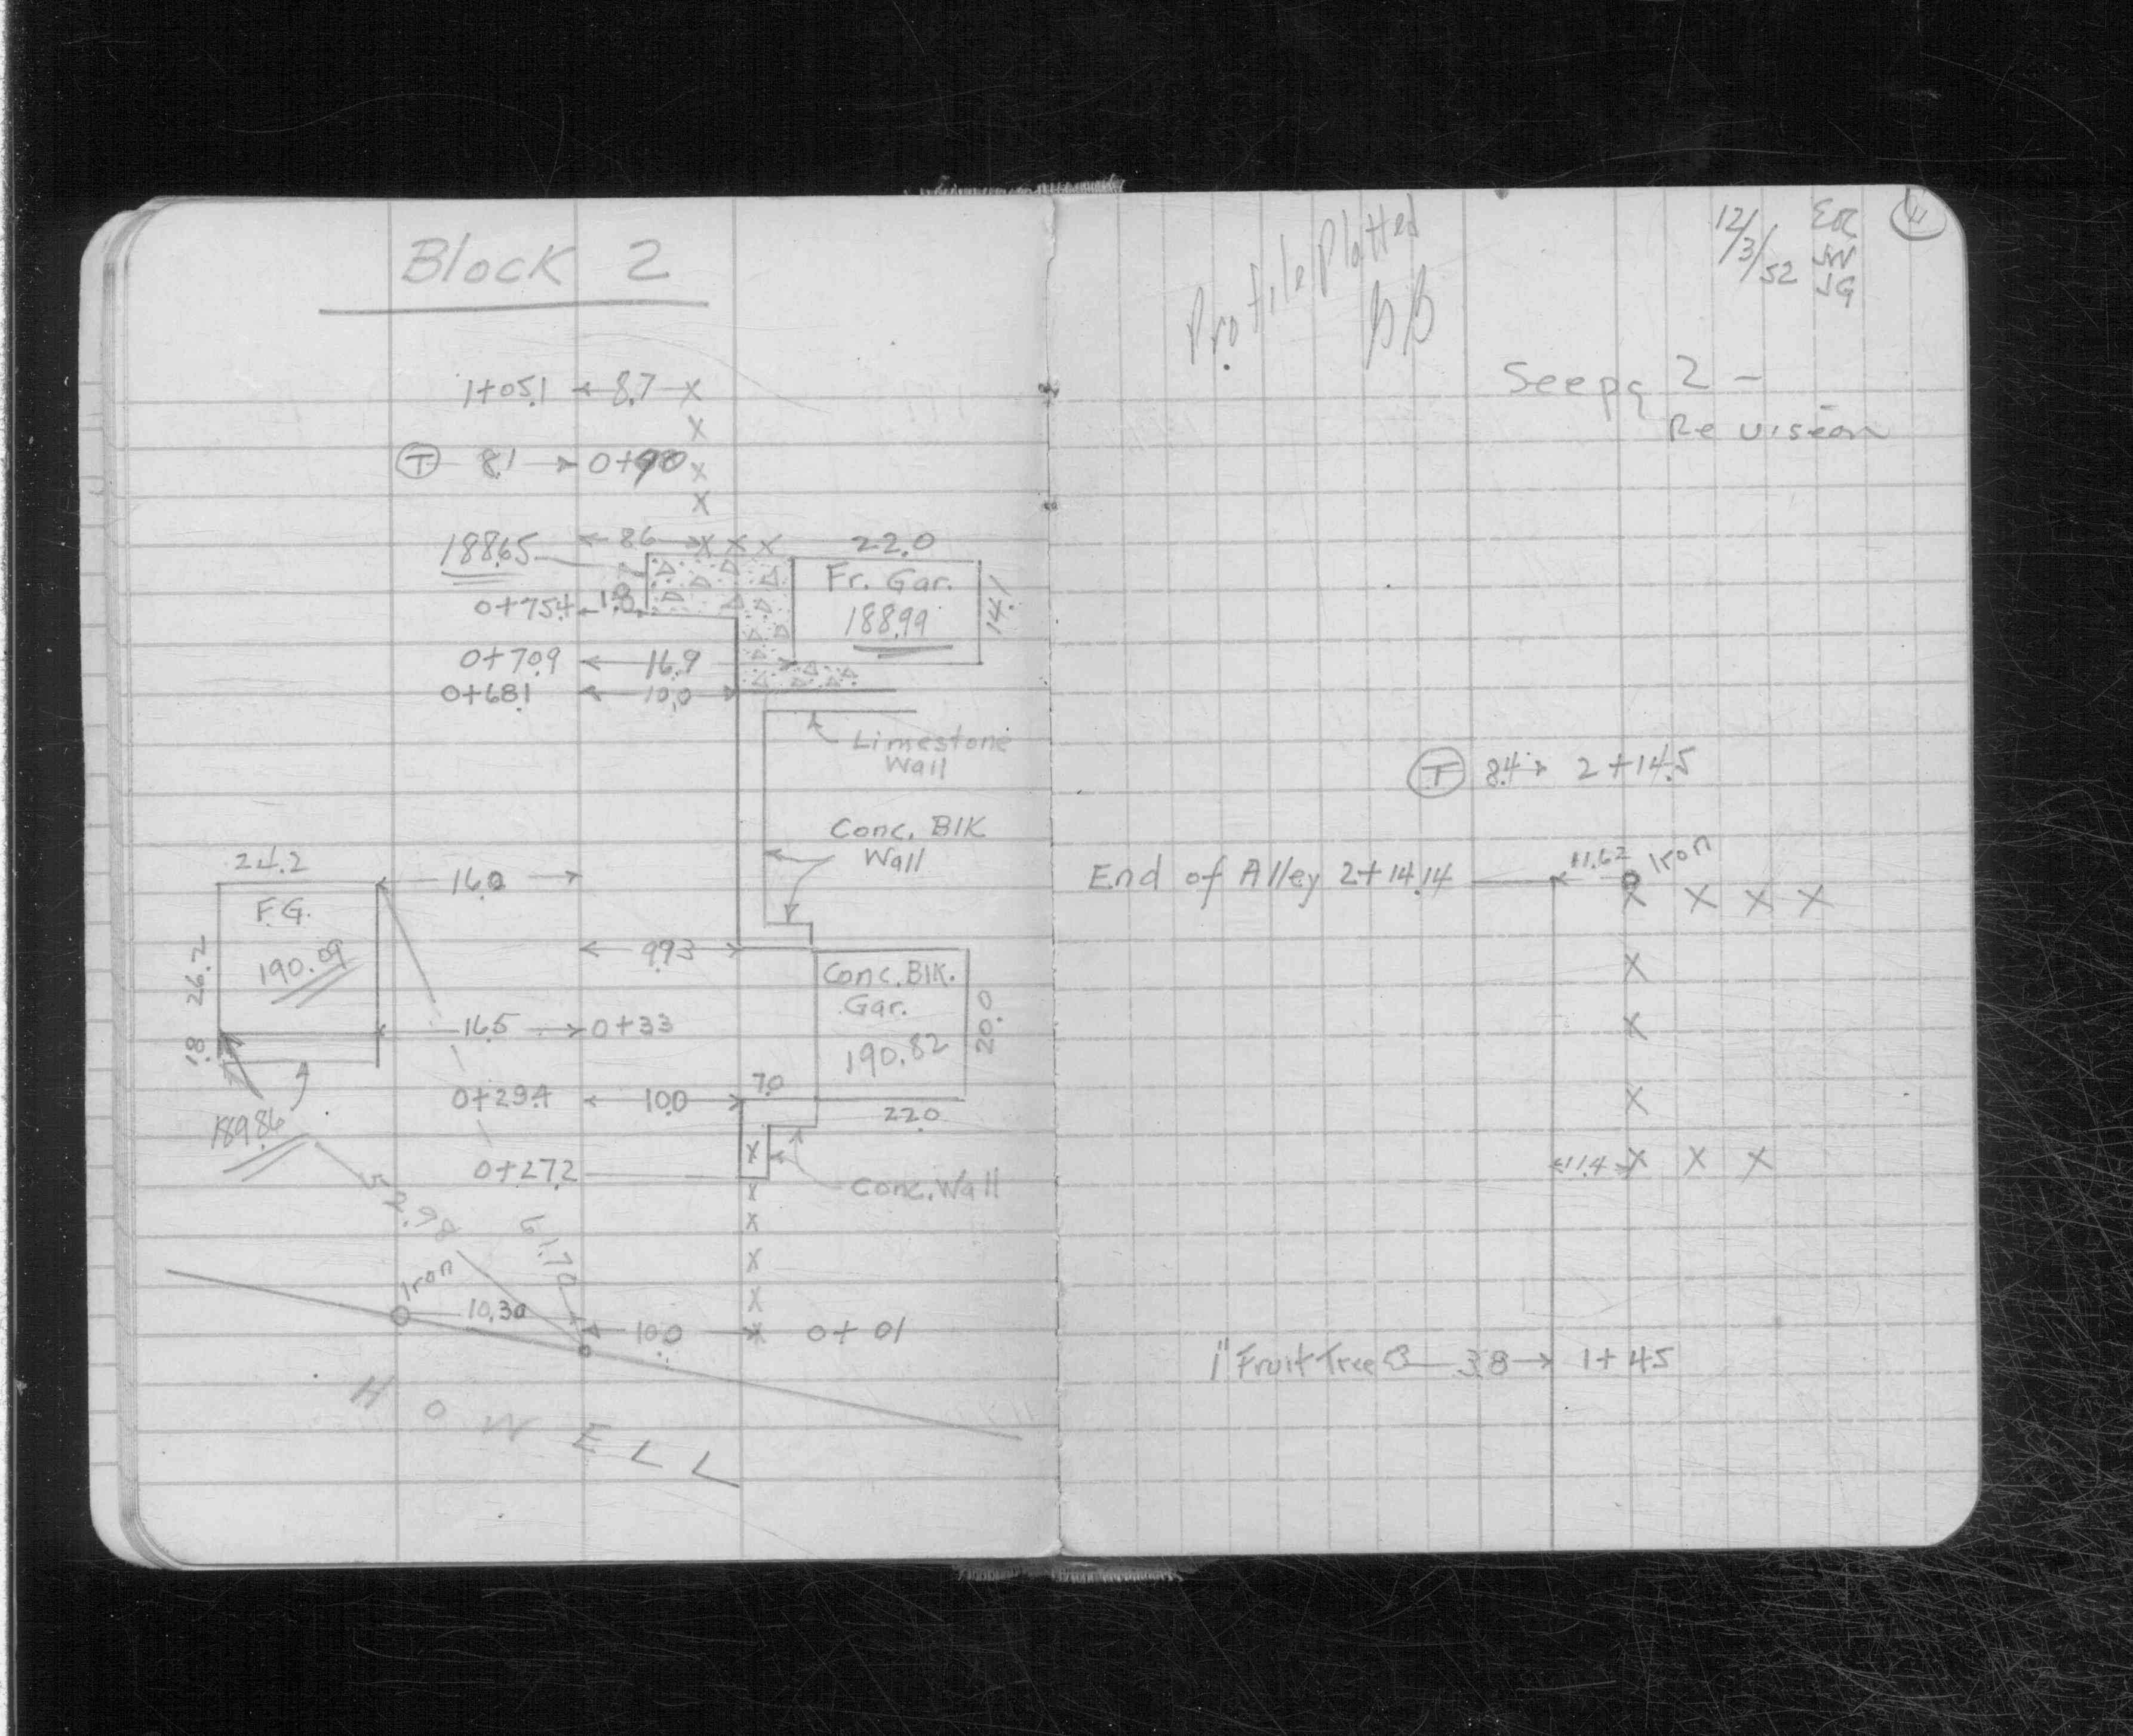 Block 2
1+05.1 8.7 X
X
T 8.1 0+98 X
X
188.65 8.6 X X X 22.0
Fr. Gar.
188.99
14.1
0+75.4 1.8
0+70.9 16.9
0+68.1 10.0
Limestone
Wall
Conc. Blk
Wall
24.2
16.0
F.G.
190.09
26.2
9.93
Conc. Blk.
Gar.
190.82
20.0
16.5 0+33
1.8
7.0
0+29.4 10.0
22.0
189.86
0+27.2 X
Conc. Wall
X
X
X
X
52.98
51.70
Iron
10.30
10.0 X 0+01
HOWELL
12/3/52
JW
JG
Profile Platted
BB
See pg 2 -
Revision
T 8.4 2+14.5
End of Alley 2+14.14 11.62 Iron
X X X X
X
X
X
11.4 X X X
1" Fruit Tree 3.8 1+45